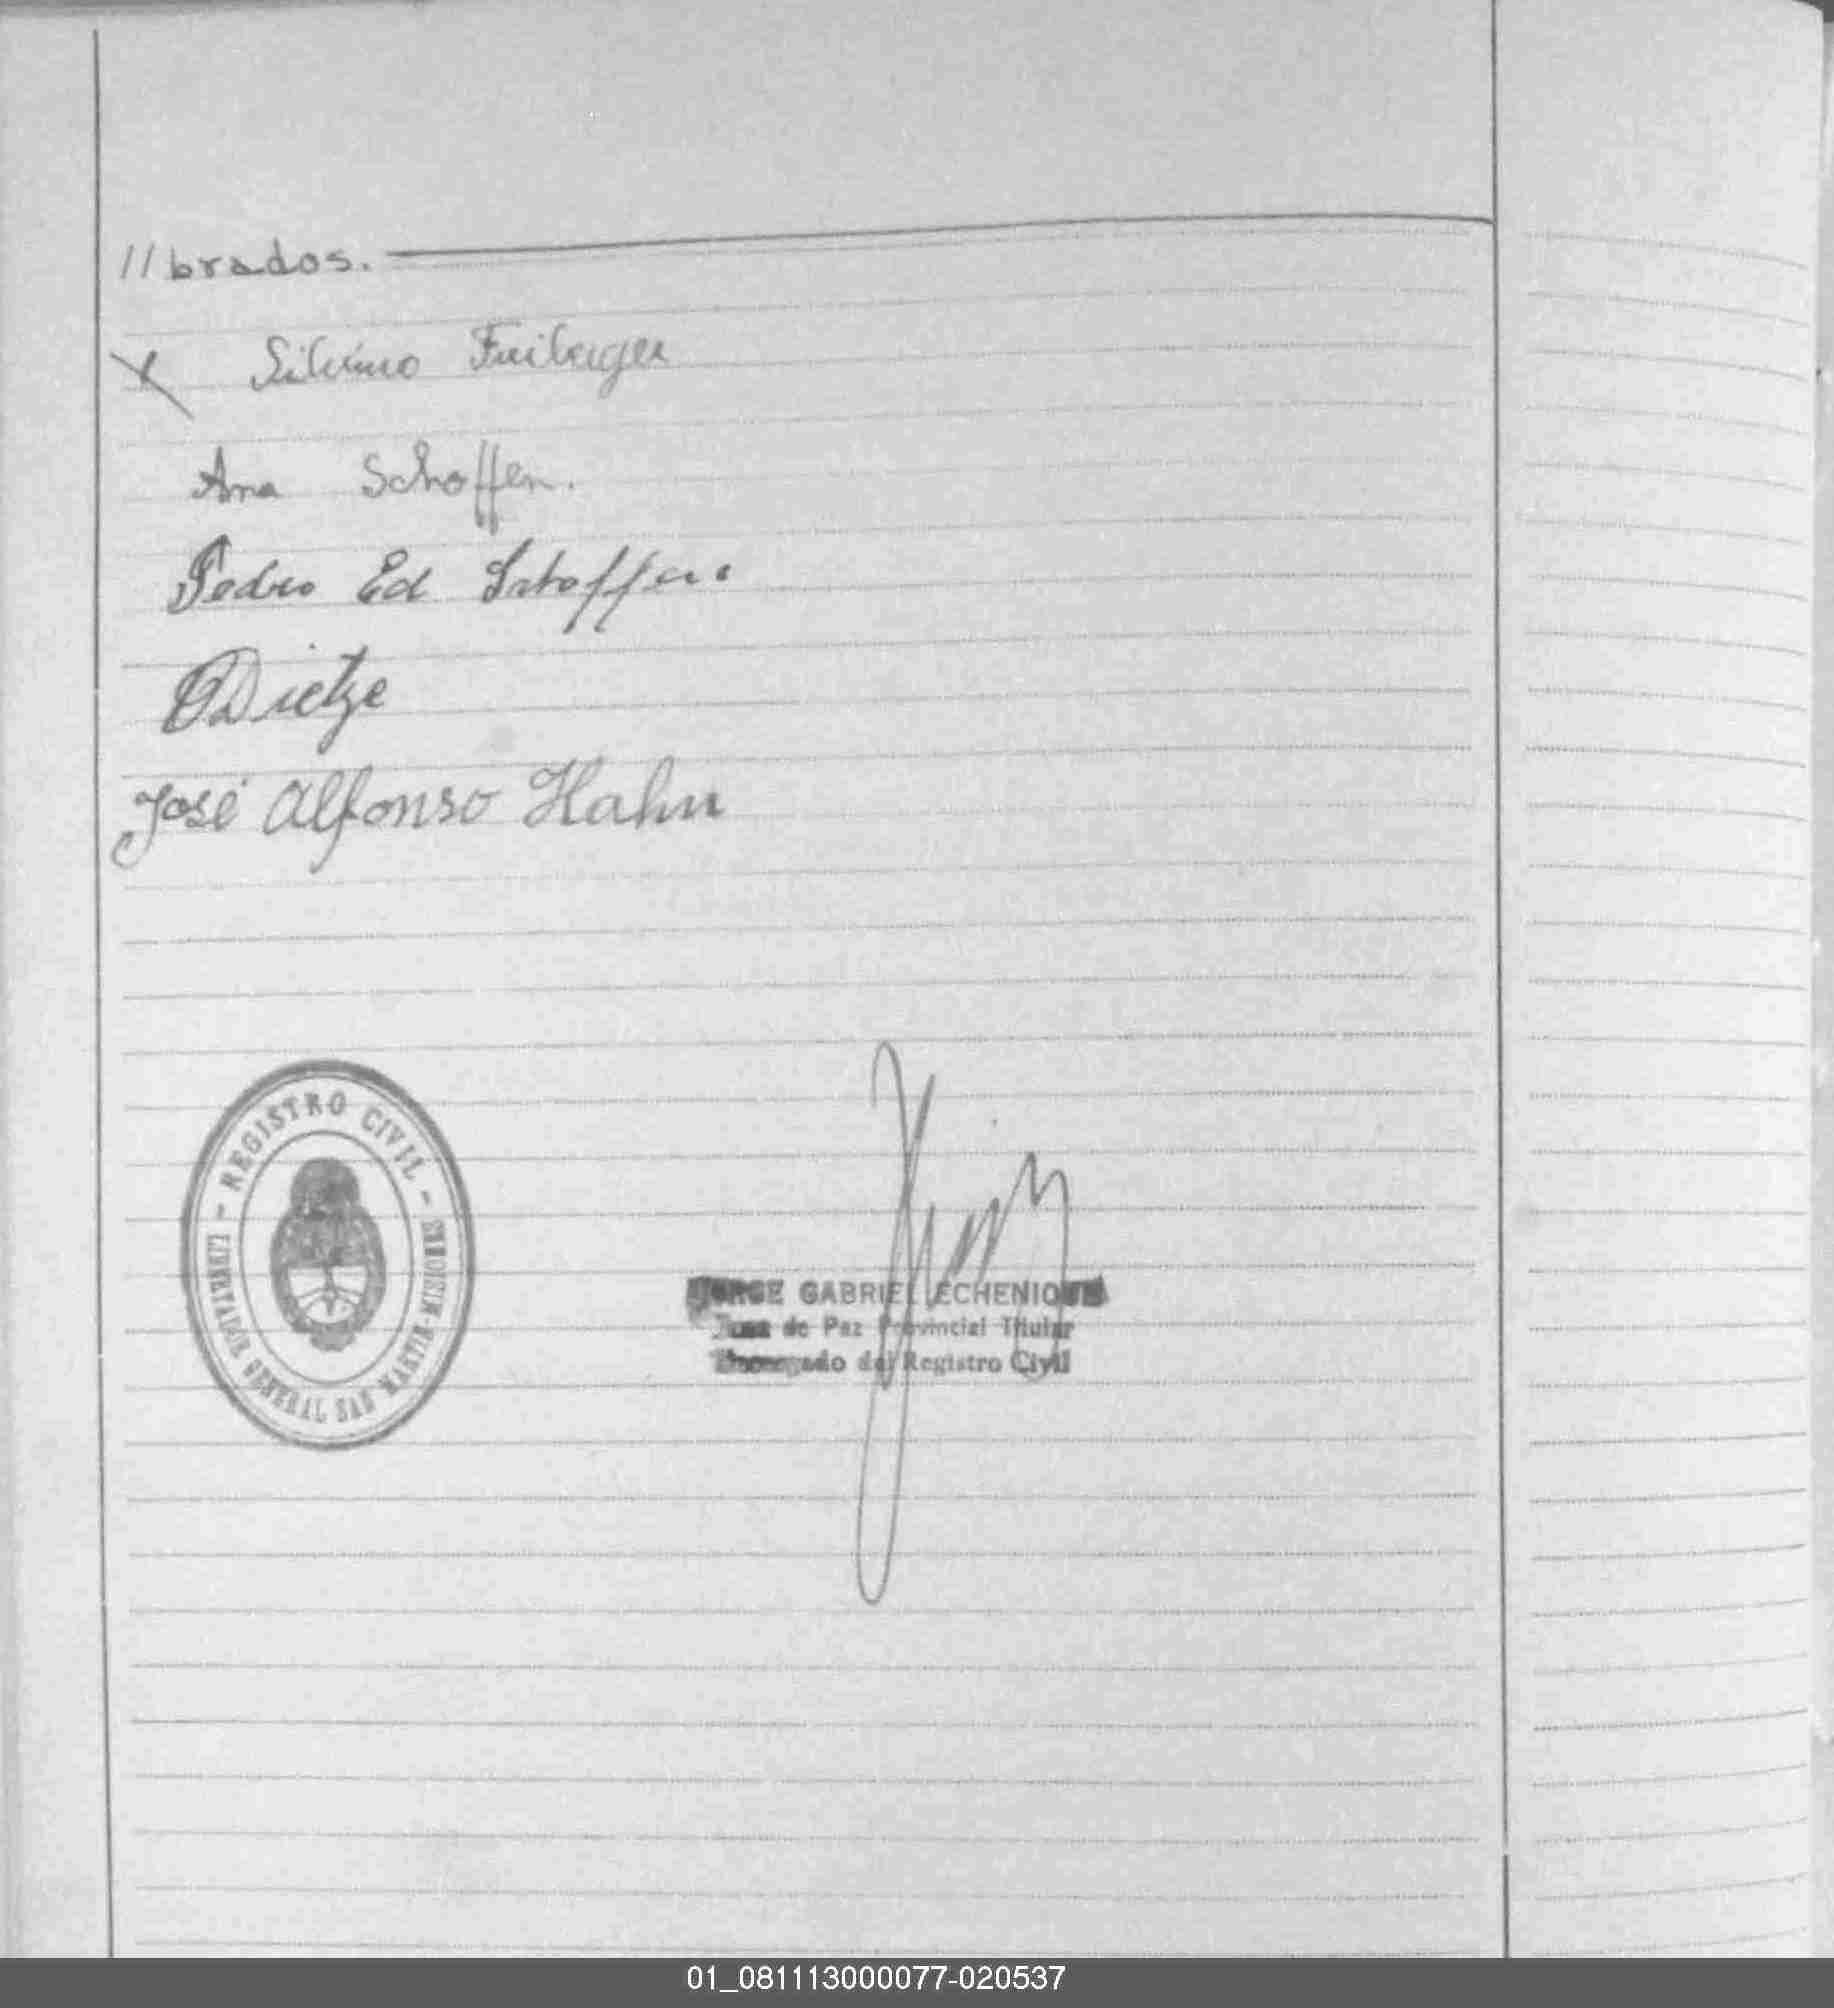 //brados.
Silvino Freiberger
Ana Schoffen.
Pedro Ed Schoffen.
Dietze
José Alfonso Hahn
- REGISTRO CIVIL -
LIBERTADOR GENERAL SAN MARTIN-MISIONES
JORGE GABRIEL ECHENIQUE
Juez de Paz Provincial Titular
Encargado del Registro Civil
01_081113000077-020537